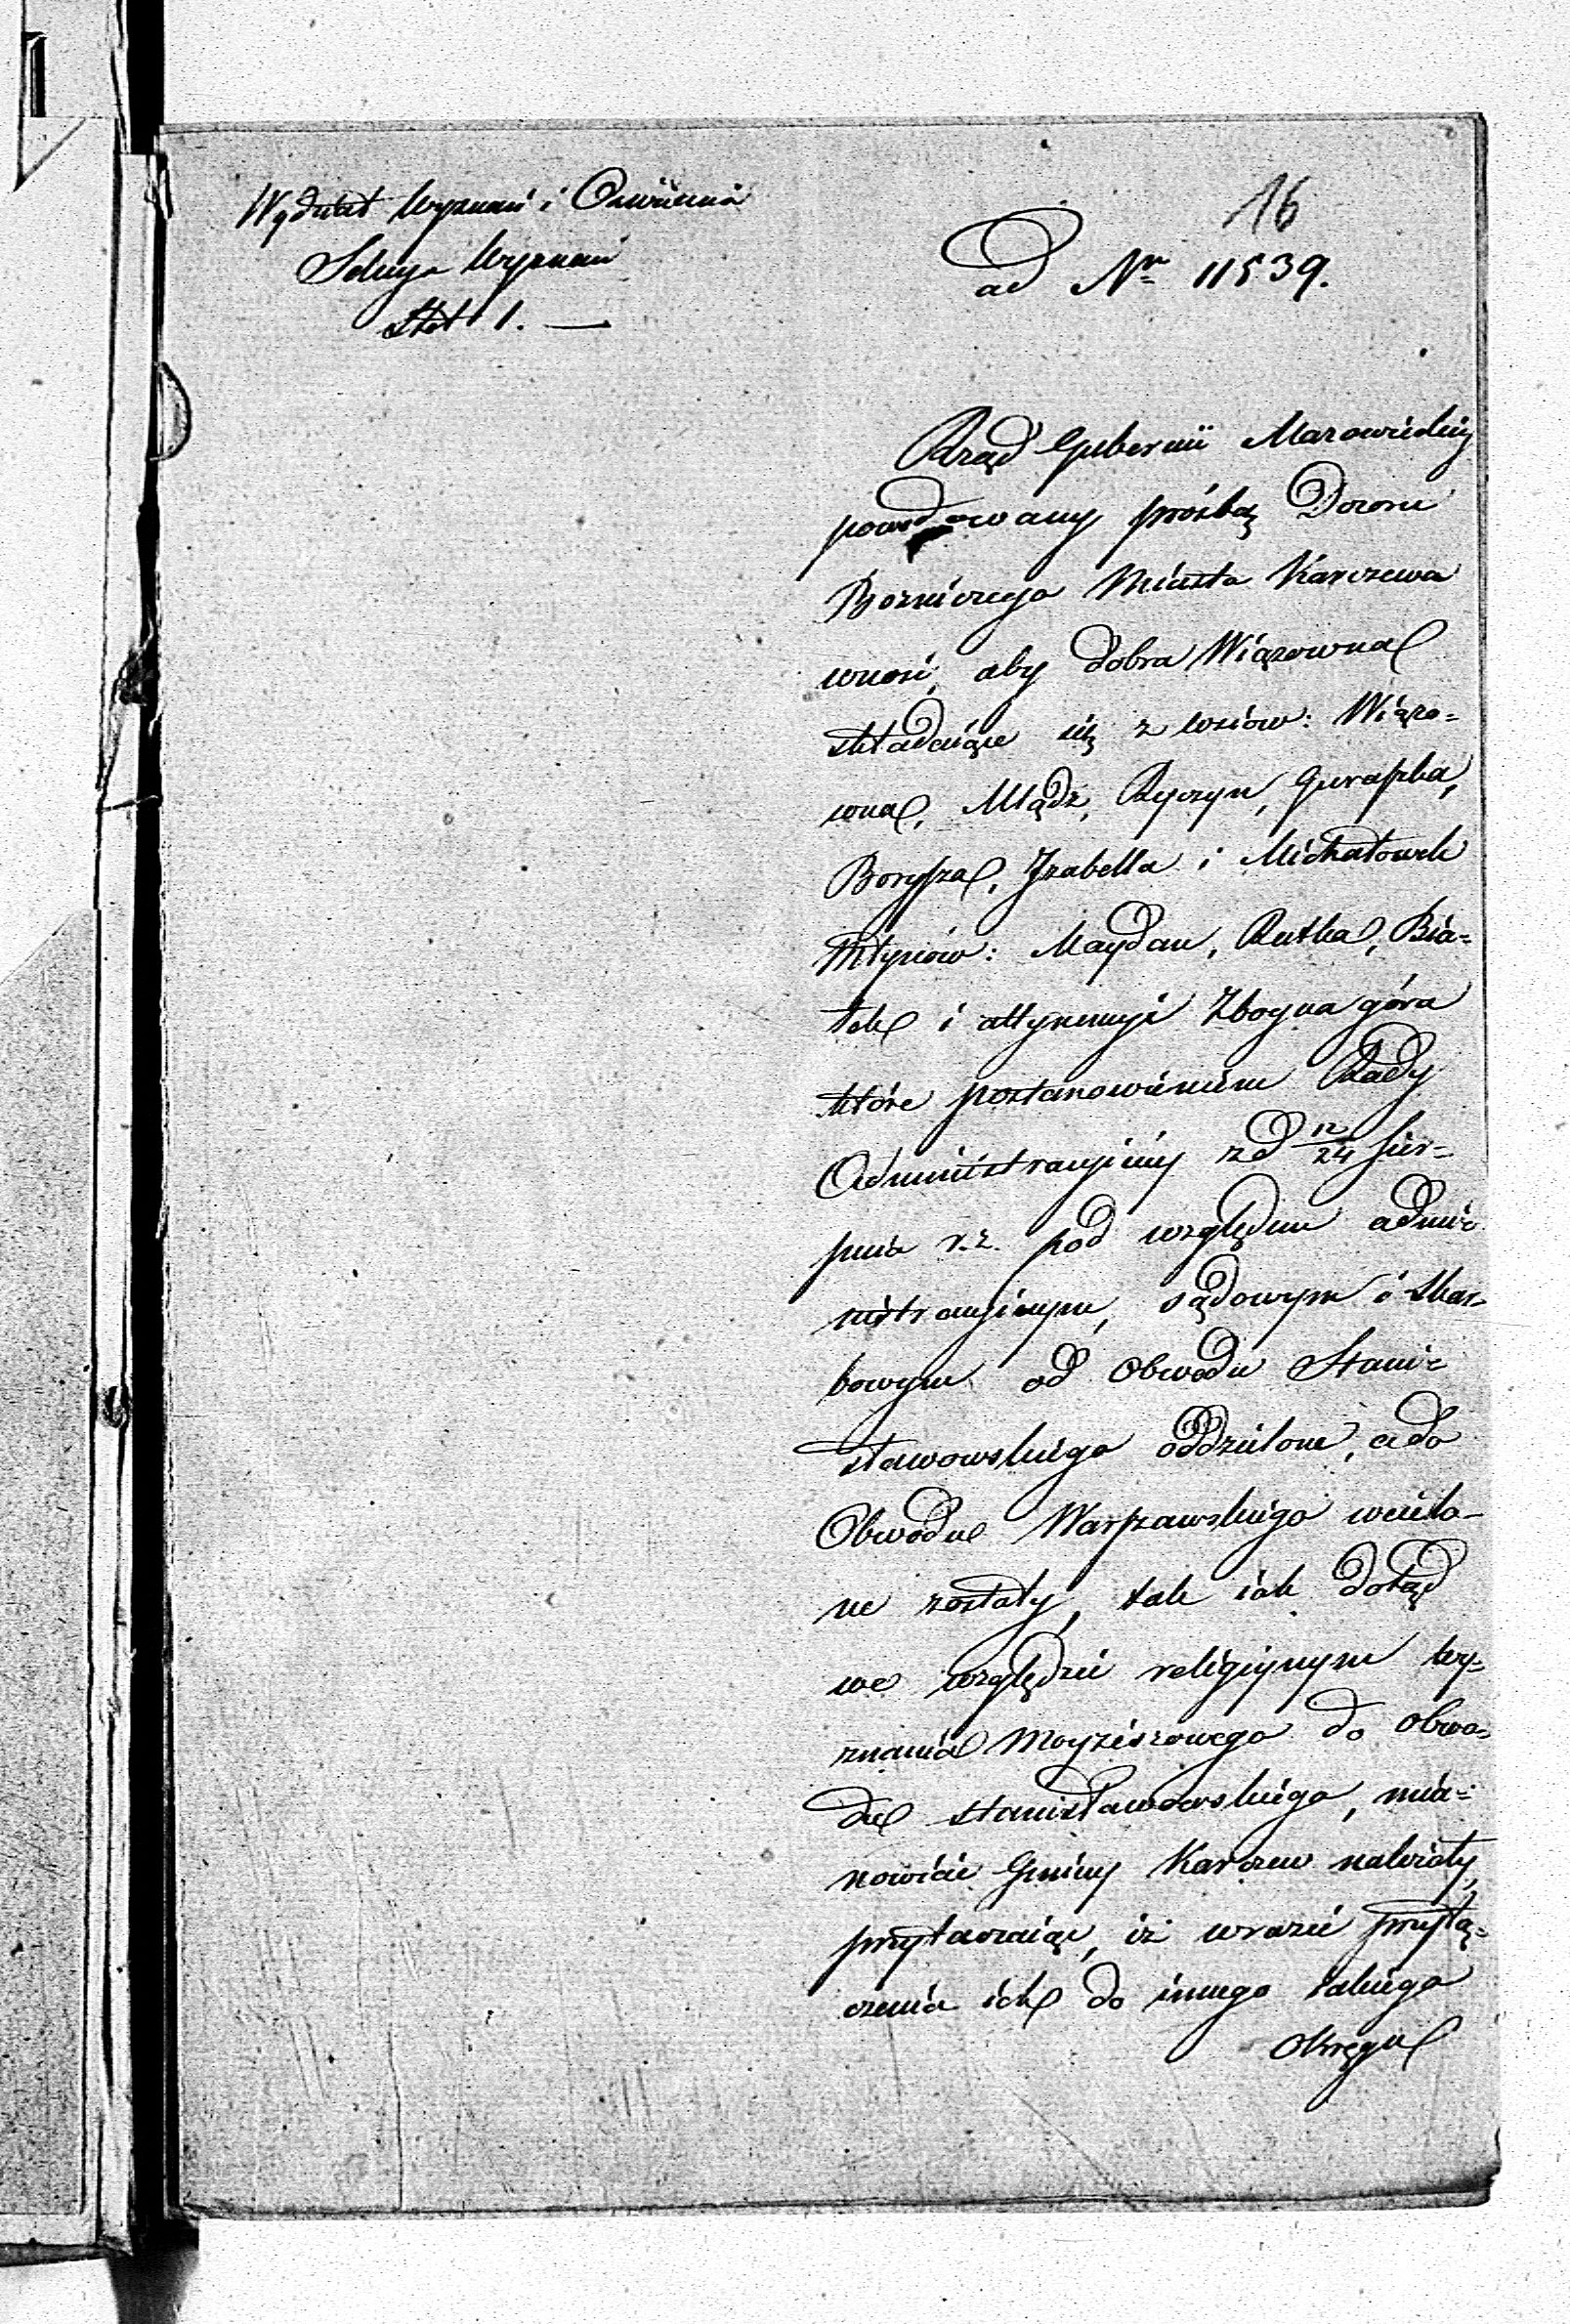 Wydział Wyznań i Oświecenia
Sekcya Wyznań
Stół 1. —
16
ad Nr 11539.
Rząd Gubernii Mazowieckiej
powodowany prośbą Dozoru
Bożniczego Miasta Karczewa
wnosi, aby dobra Wiązowna
składaiące się z wsiów: Wiązo=
wna, Mlądz, Ryczyn, Guraszka,
Borysza, Izabella i Michałowek
Młynów: Maydan, Rutka, Bia=
łek i attynencyi Zboyna góra
które postanowieniem Rady
Administracyiney z d 12/24 Sier=
pnia r. z. pod względem admi=
nistracyinym, sądowym i skar=
bowym od Obwodu Stani=
sławowskiego oddzielone, a do
Obwodu Warszawskiego wcielo=
ne zostały, tak iak dotąd
we względzie religiynym wy=
znania Moyżeszowego do obwo=
du stanisławowskiego, mia=
nowicie Gminy Karczew należały,
przytaczaiąc, iż w razie przyłą=
czenia ich do innego takiego
Okręgu